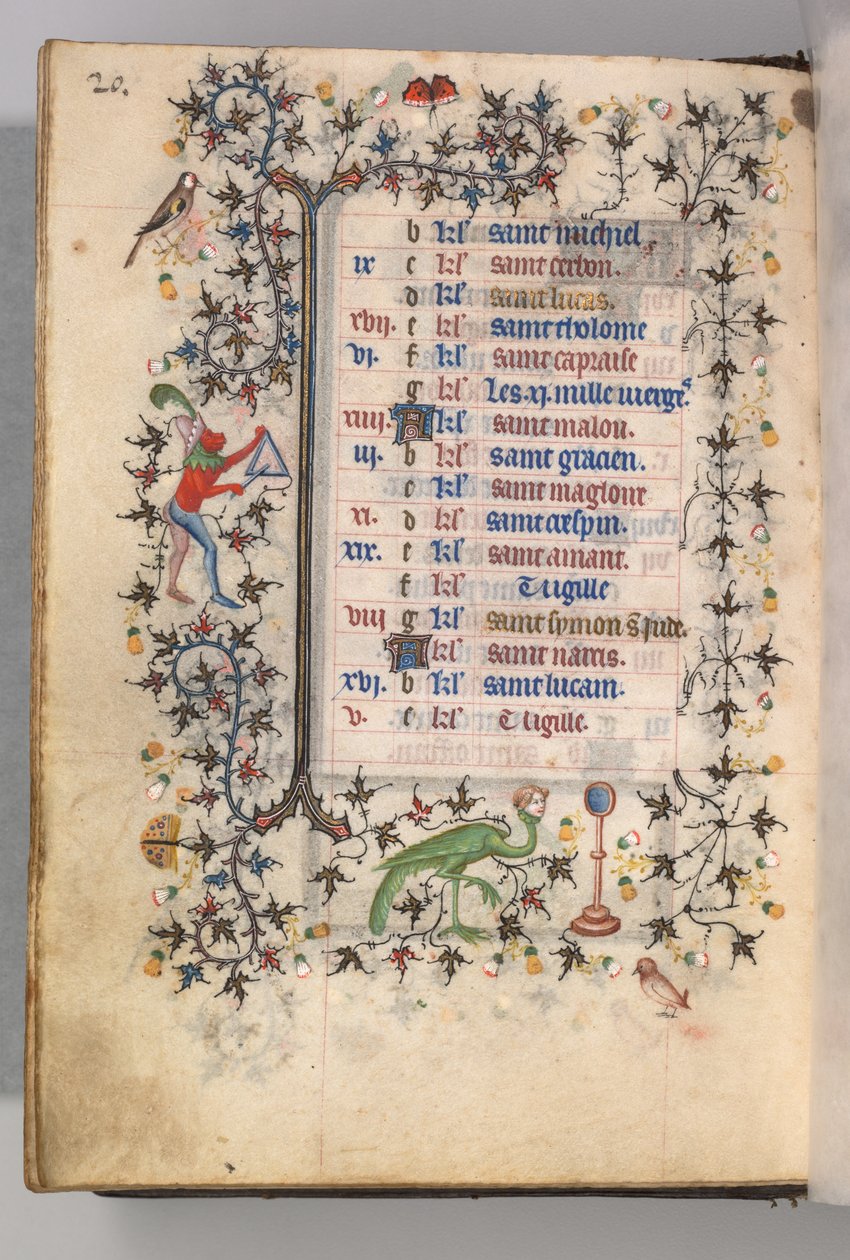 20.
b kl' saint michiel.
ix c kl' saint cerbon.
d kl' saint lucas.
xvij. e kl' saint tholome
vj. f kl' saint capraise
g kl' Les .xj. mille vierges
xiiij. A kl' saint malou.
iij. b kl' saint gracien.
c kl' saint magloire
xj. d kl' saint crespin.
xix. e kl' saint amant.
f kl' Vigille
viij g kl' saint symon s. jude.
A kl' saint narcis.
xvj. b kl' saint lucain.
v. c kl' Vigille.